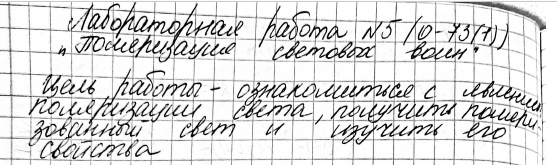 Лабораторная работа №5 (О-73(1))
"Поляризация световых волн"
Цель работы - ознакомиться с явлением
поляризации света, получить поляри-
зованный свет и изучить его
свойства